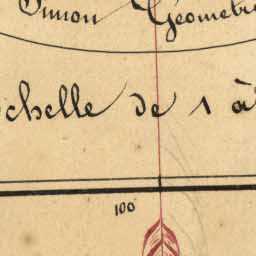 Simon Géomètre
échelle de 1 à
100